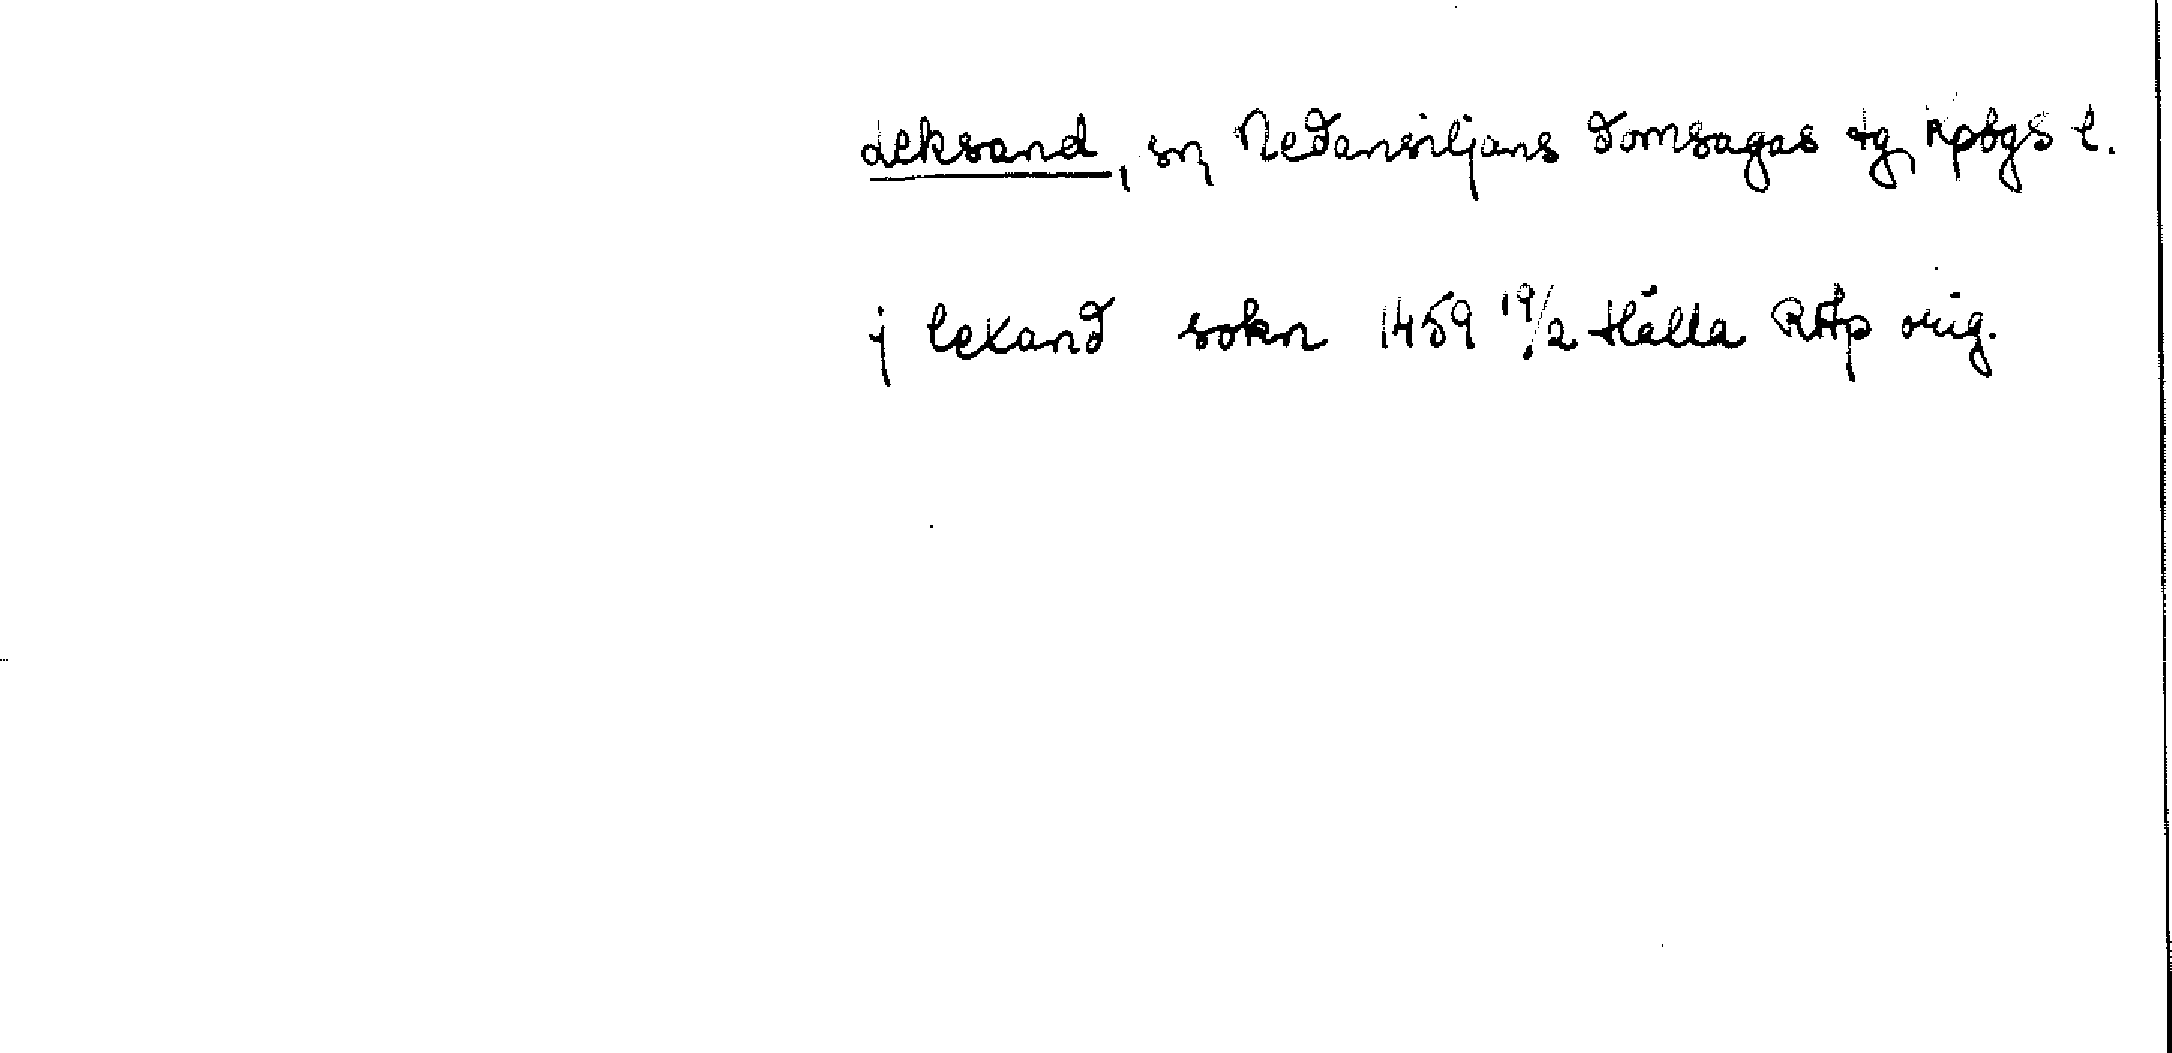 Leksand, sn, Nedansiljans domsagas tg, Kpbgs l.
j lexand sokn 1459 19/2 Hälla RAp orig.